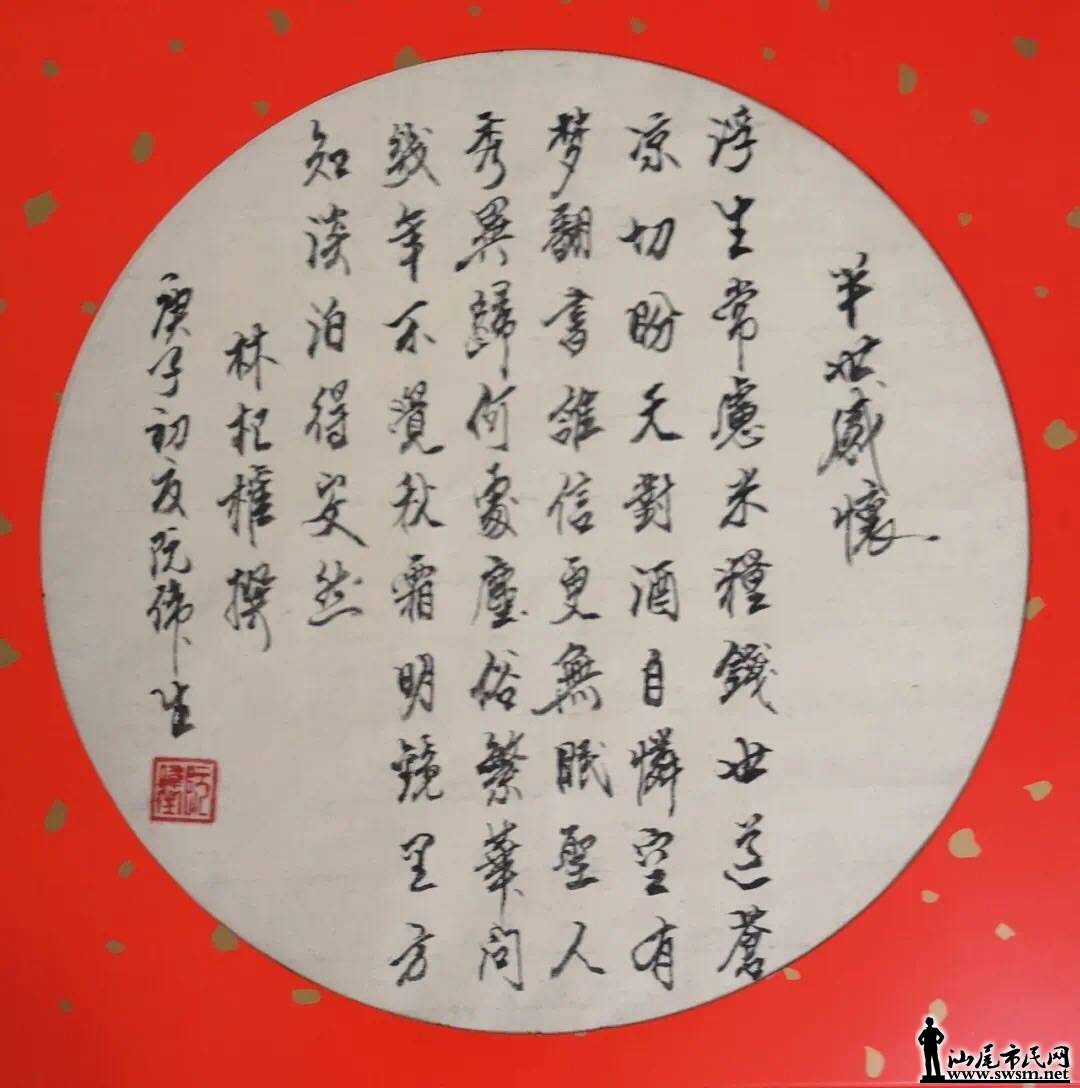 半世感懷
浮生常慮米糧錢世道蒼
凉切盼天對酒自憐空有
梦翻書誰信更無眠聖人
秀異歸何處塵俗繁華問
幾年不覺秋霜明鏡里方
知淡泊得安然
林杞權撰
庚子初夏阮偉生
汕尾市民网
www.swsm.net